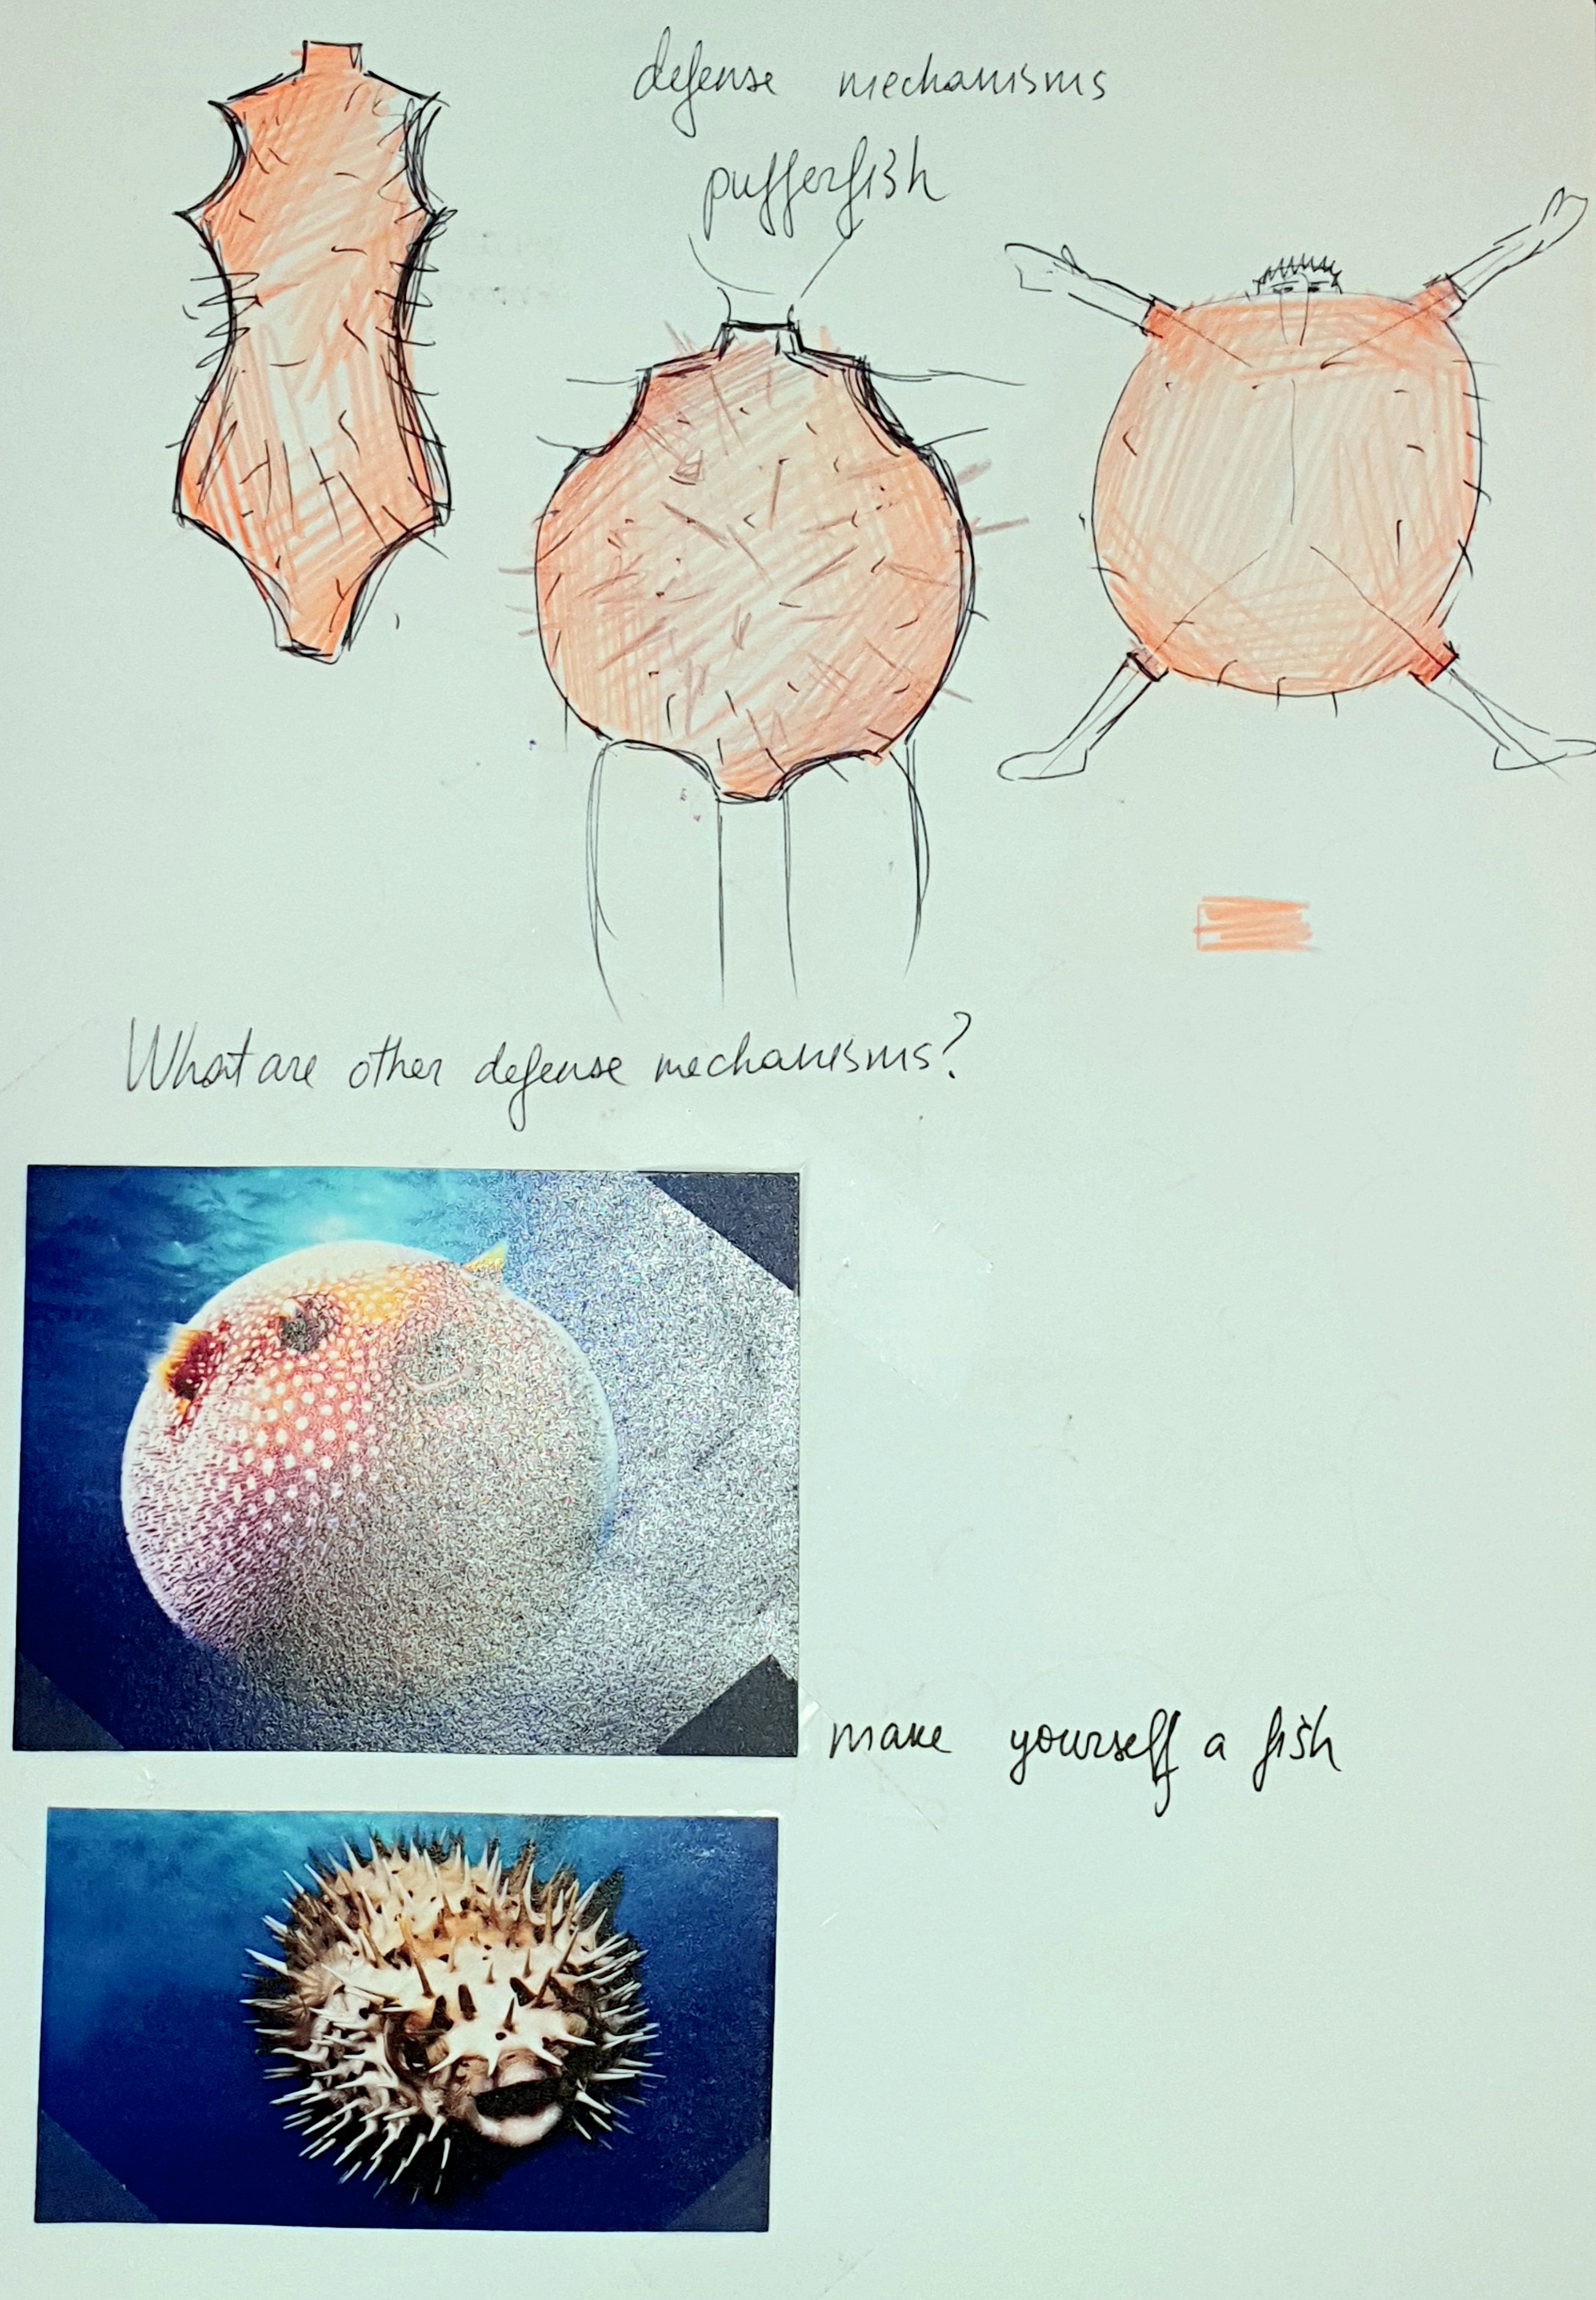 defense mechanisms
pufferfish
What are other defense mechanisms?
make yourself a fish